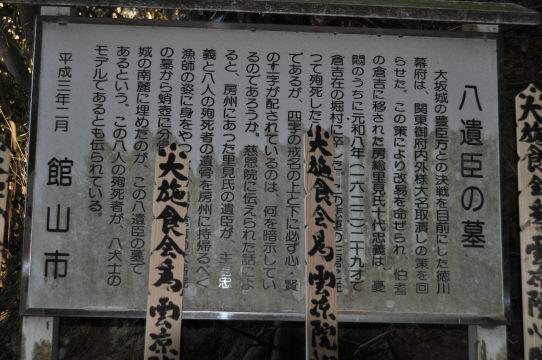 八遺臣の墓
大坂城の豊臣方との決戦を目前にした徳川
幕府は、関東御府内外様大名取潰しの策を回
らせた。この策により改易を命ぜられ 伯耆
の倉吉に移された房総里見氏十代忠義は、憂
悶のうちに元和八年(一六二二)二十九才で
倉吉在の堀村に卒した。
つて殉死した
であるが、四字の戒名の上と下に必ず心・賢
の十字が配されているのは 何を暗示してい
るのであろうか。慈恩院に伝えられた話によ
ると、房州にあった里見氏の遺臣が、主君忠
義と八人の殉死者の遺骨を房州に持帰るべく
漁師の姿に身をや
の墓から蛸壺に分骨
城の南麓に埋めたのが、この八遺臣の墓で
あるという。この八人の殉死者が、八犬士の
モデルであるとも伝られている。
平成三年二月 館山市
大施食会為
大施食会為 雲凉
大施食会為 雲凉院
大施食会為 雲凉院心